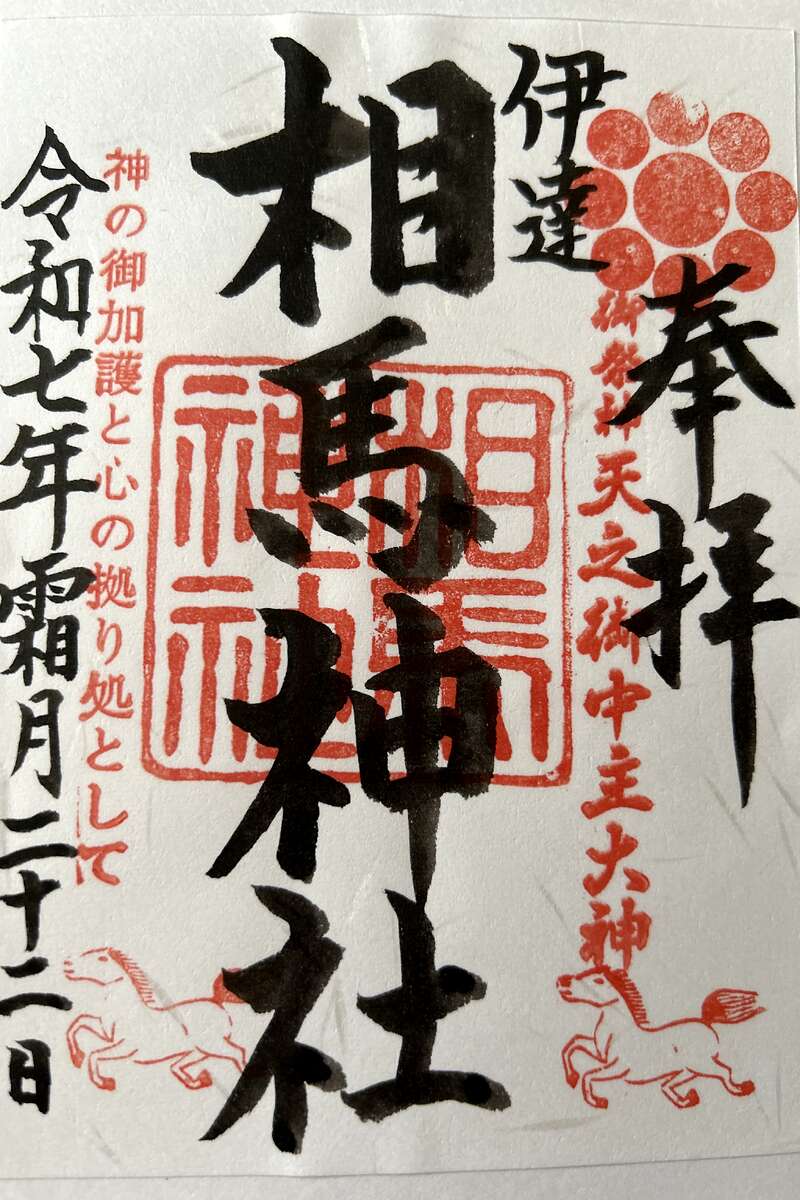 奉拝
御祭神天之御中主大神
伊達
相馬神社
相馬
神社
神の御加護と心の拠り処として
令和七年霜月二十二日